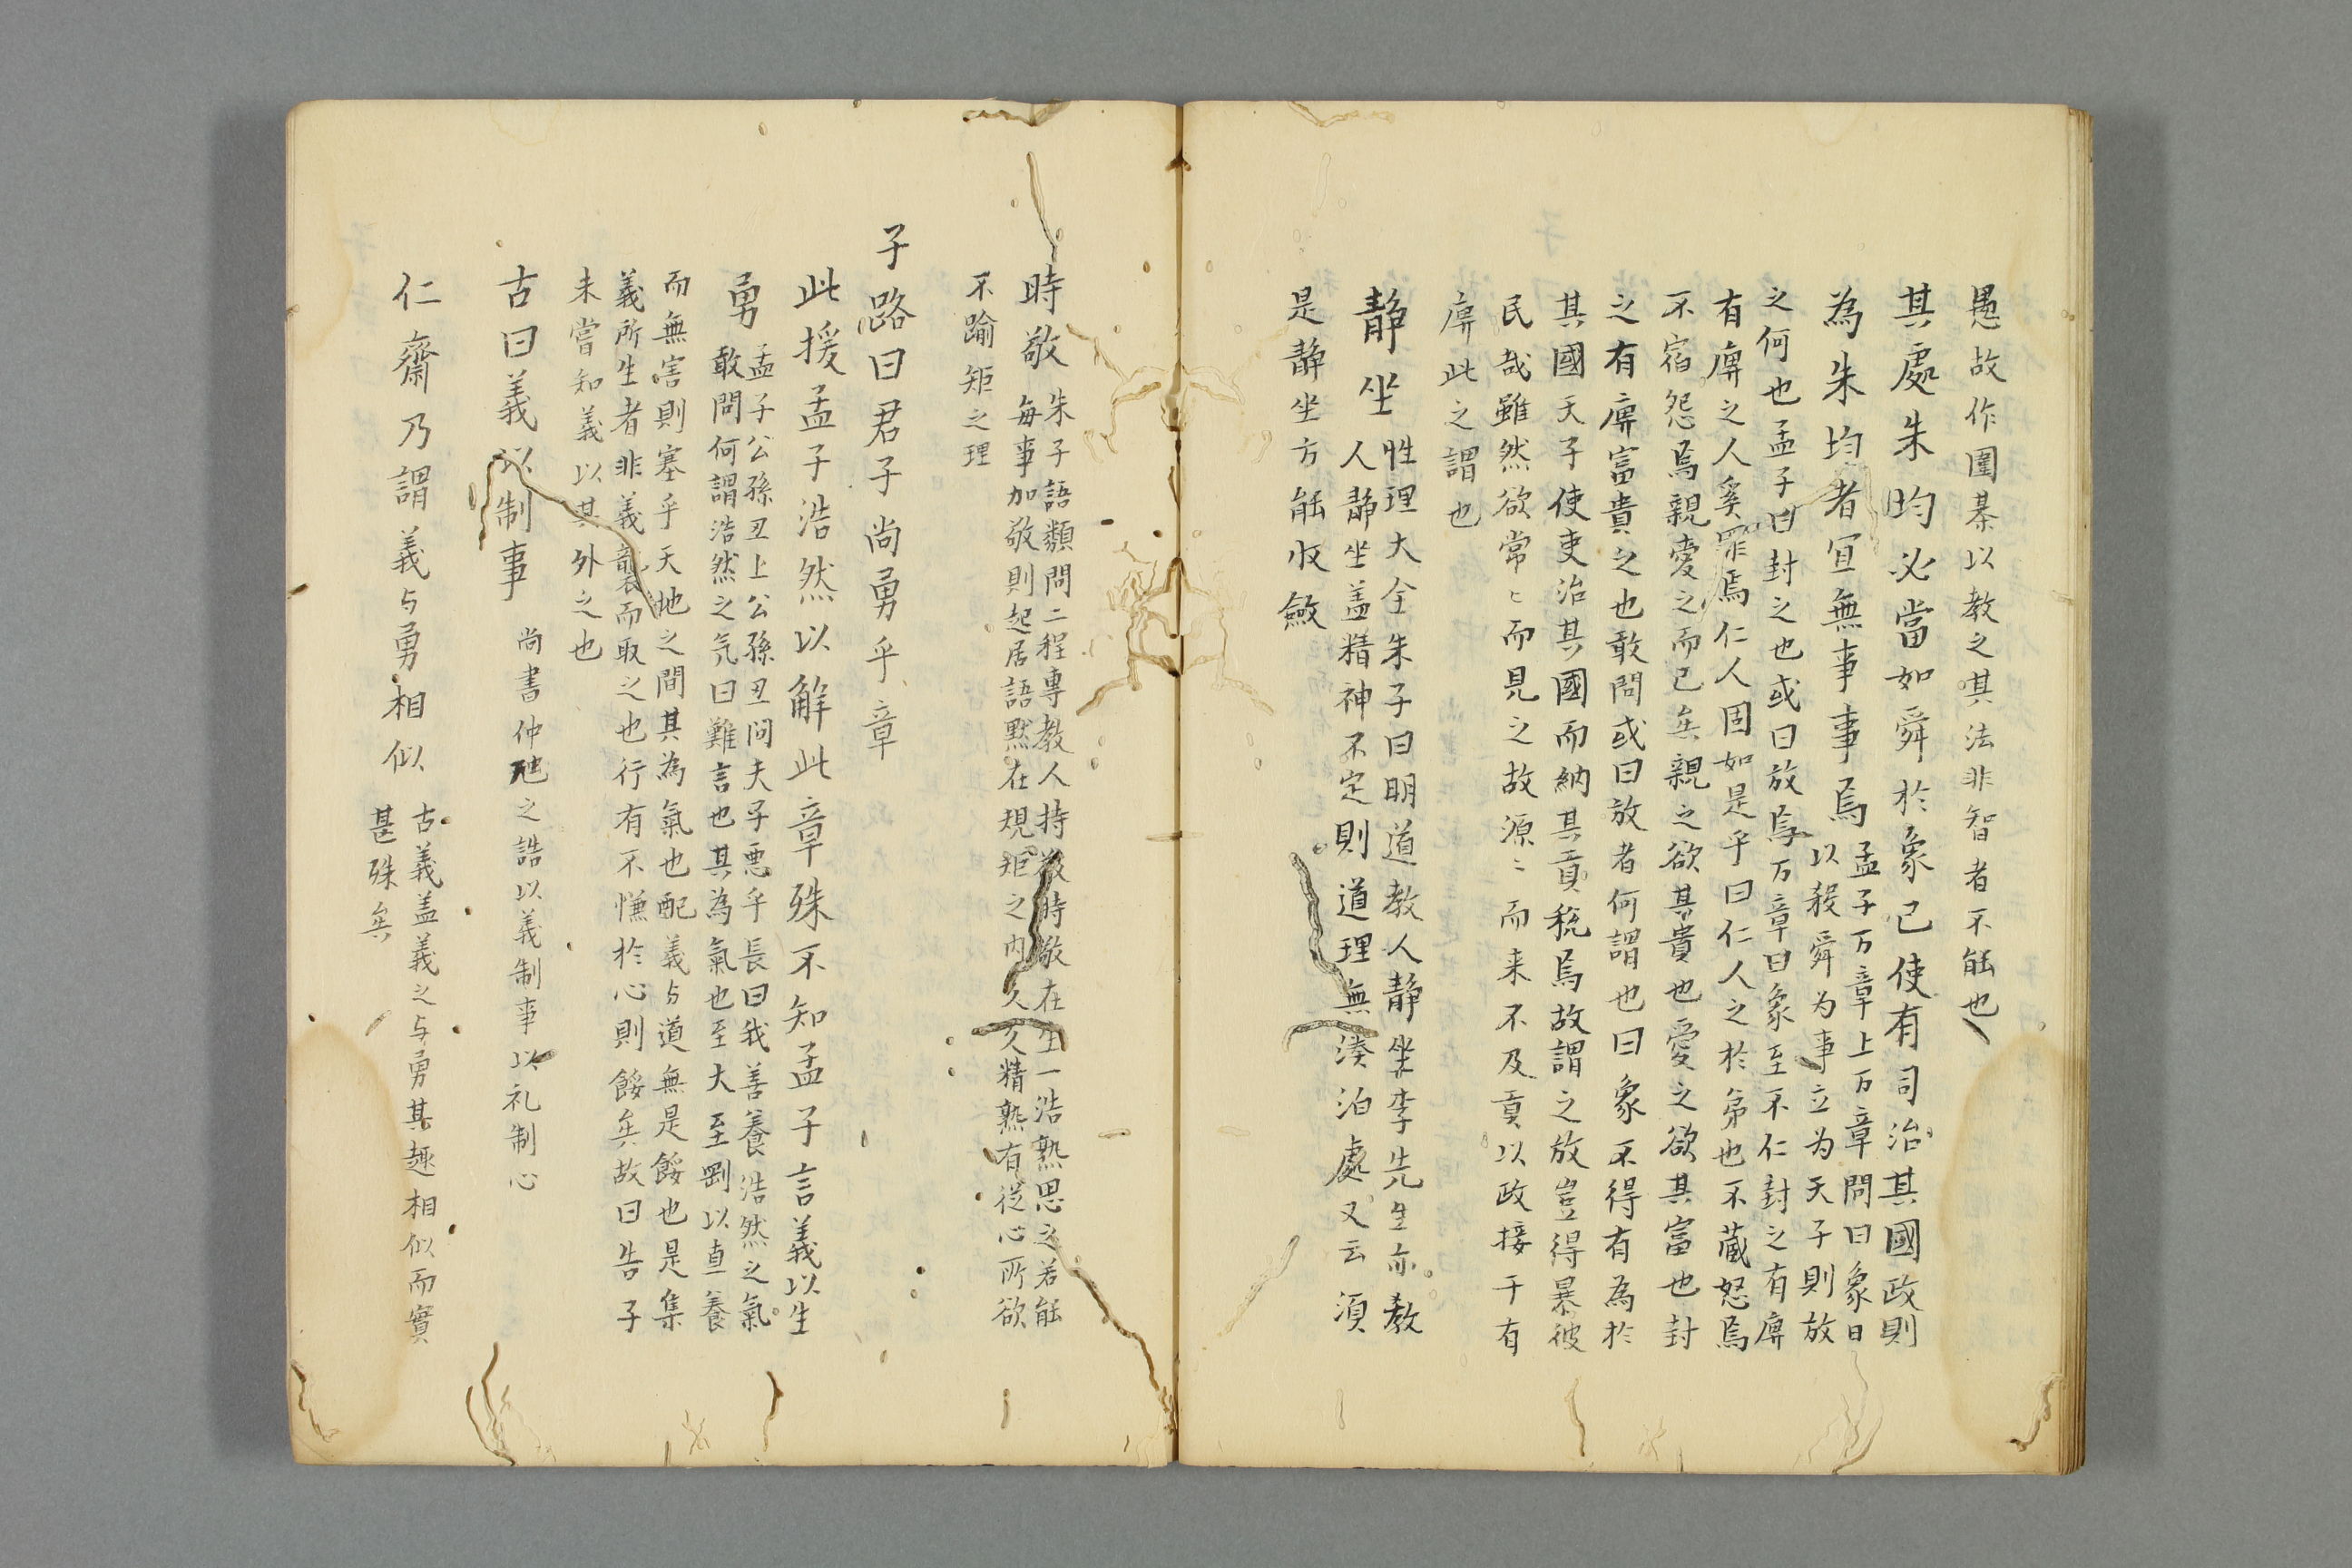 愚故作圍棊以教之其法非智者不能也
其處朱昀必當如舜於象已使有司治其國政則
為朱均者宜無事事焉
孟子万章上万章問曰象日
以殺舜为事立为天子則放
之何也孟子曰封之也或曰放焉万章曰象至不仁封之有庳
有庳之人奚罪焉仁人固如是乎曰仁人之於弟也不蔵怒焉
不宿怨焉親愛之而已矣親之欲其貴也愛之欲其富也封
之有庳富貴之也敢問或曰放者何謂也曰象不得有為於
其國天子使吏治其國而納其貢税焉故謂之放豈得暴彼
民哉雖然欲常〻而見之故源〻而来不及貢以政接于有
庳此之謂也
靜坐
性理大全朱子曰明道教人靜坐李先生亦教
人靜坐盖精神不定則道理無湊泊處又云湏
是靜坐方能収斂
時敬
朱子語類問二程專教人持敬時敬在主一浩熟思之若能
每事加敬則起居語黙在規矩之内久久精熟有從心所欲
不踰矩之理
子路曰君子尚勇乎章
此援孟子浩然以解此章殊不知孟子言義以生
勇
孟子公孫丑上公孫丑问夫子悪乎長曰我善養浩然之氣
敢問何謂浩然之気曰難言也其為氣也至大至剛以直養
而無害則塞乎天地之間其為氣也配義与道無是餒也是集
義所生者非義襲而取之也行有不慊於心則餒矣故曰告子
未嘗知義以其外之也
古曰義以制事
尚書仲虺之誥以義制事以礼制心
仁齋乃謂義与勇相似
古義盖義之与勇其趣相似而實
甚殊矣